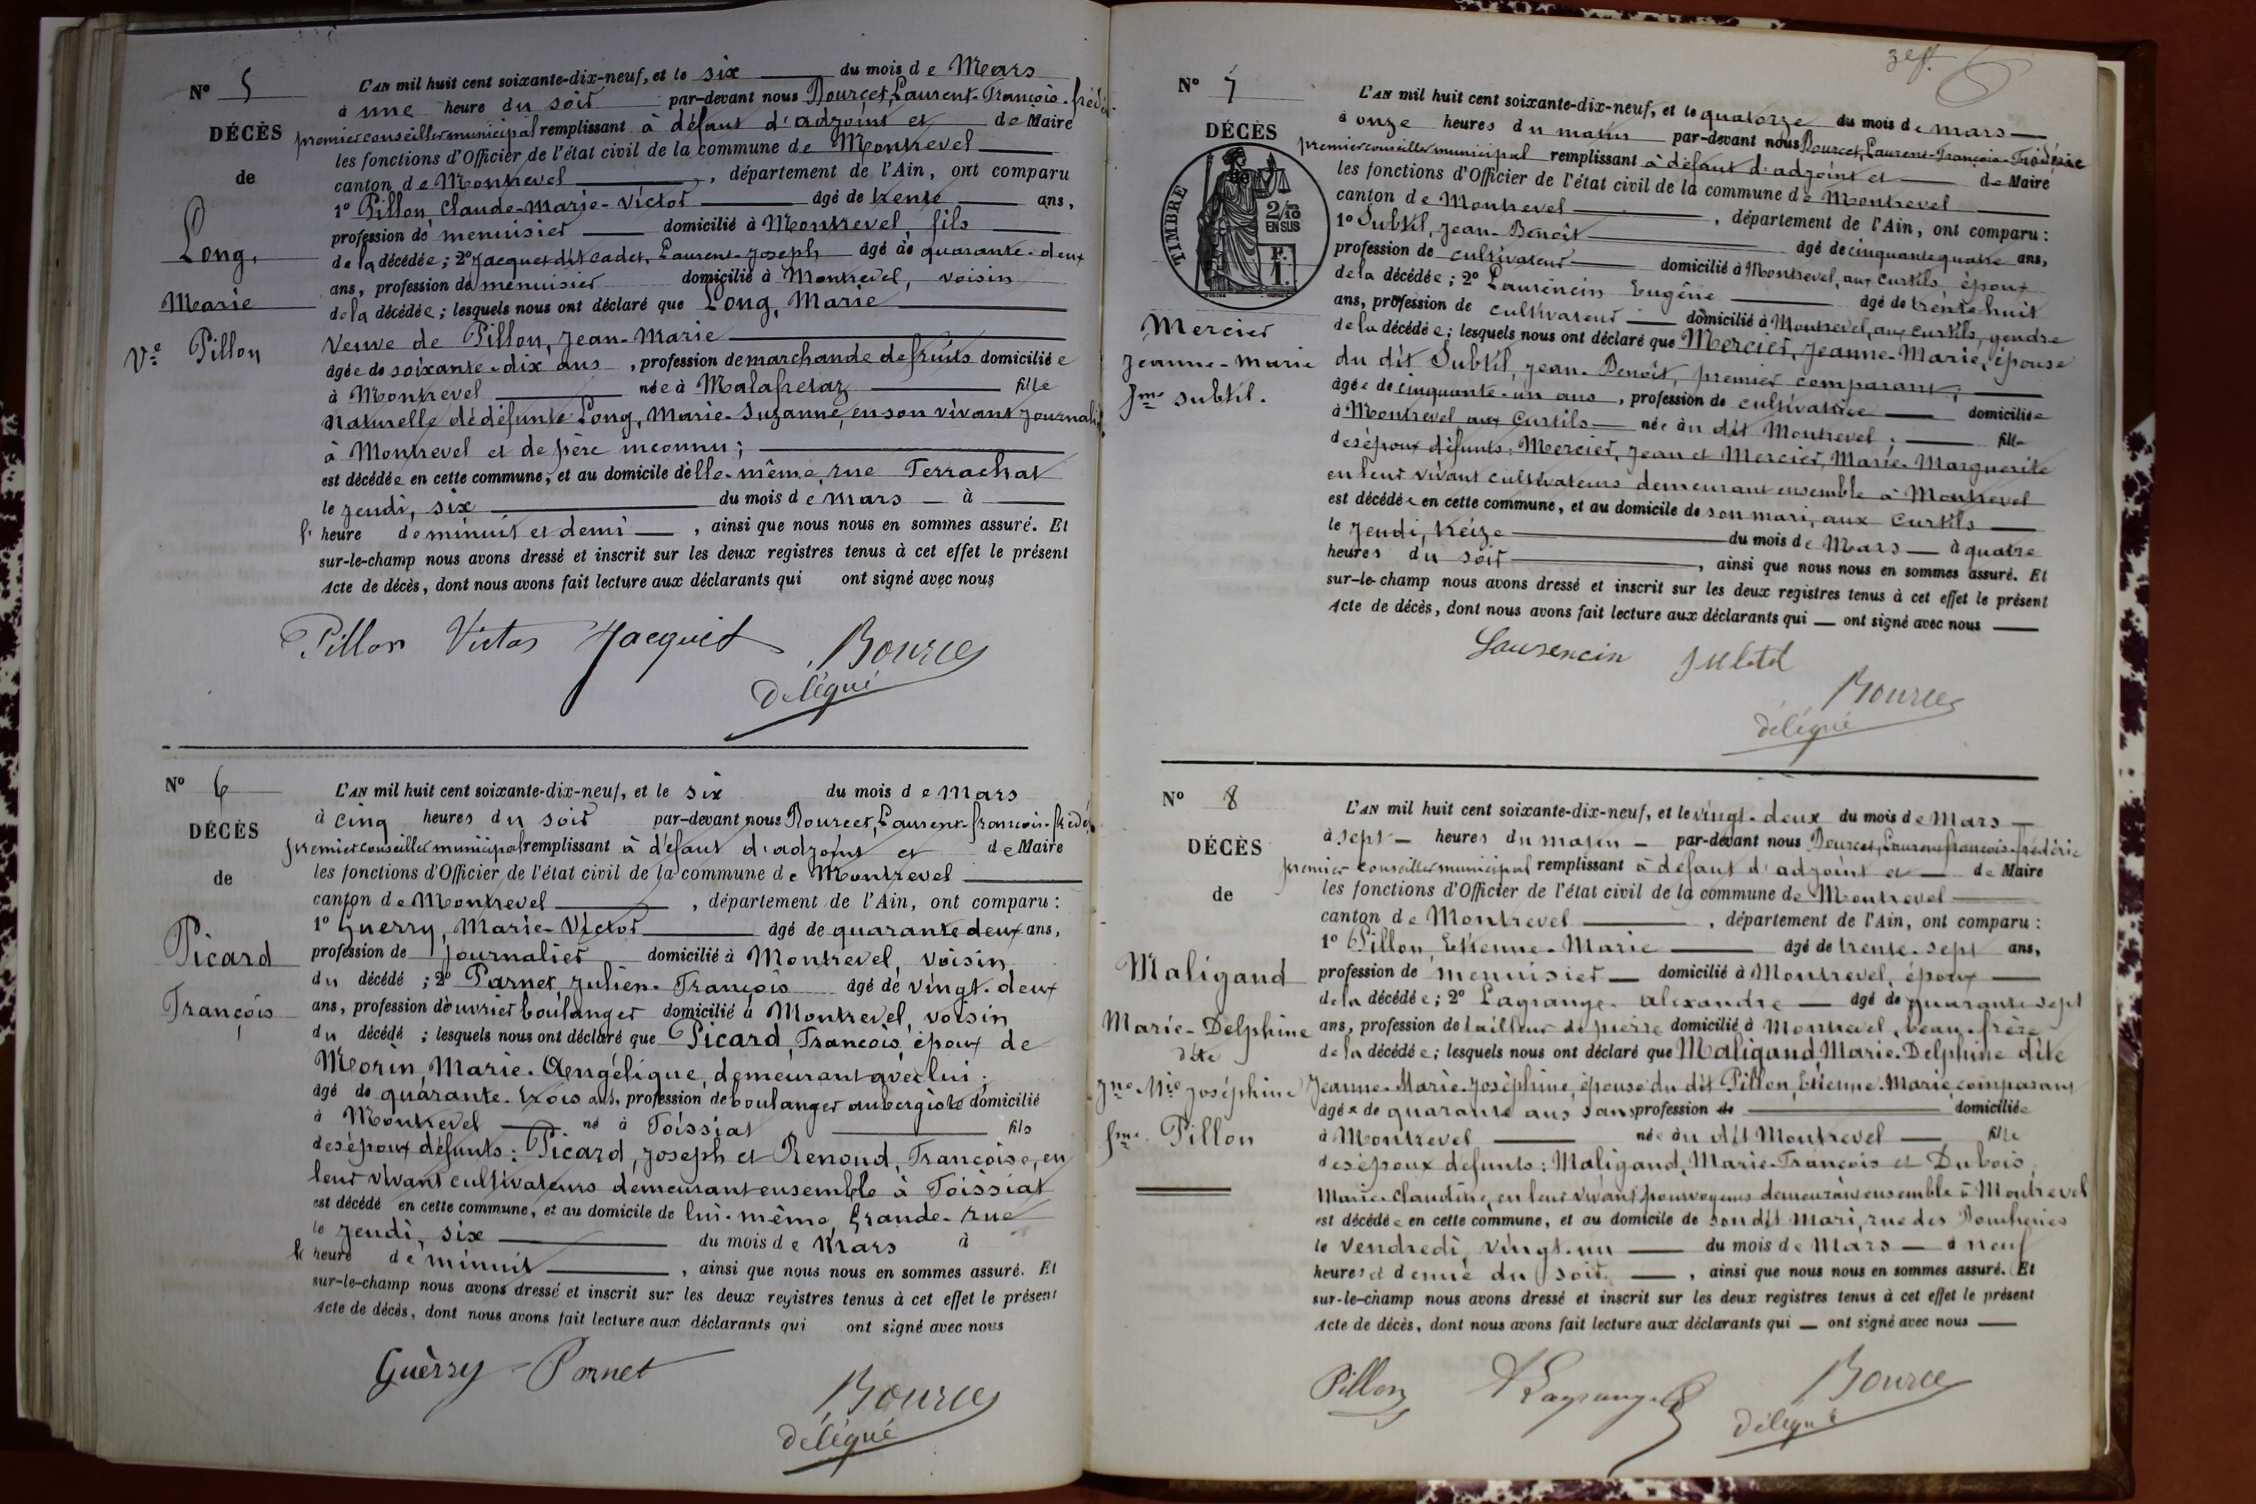 Nº 5
DÉCÈS
de
Long,
Marie
Vᵉ Pillon
L'AN mil huit cent soixante-dix-neuf, et le six du mois de Mars
à une heure du soir par-devant nous Bourcet, Laurent-François-frédé
premier conseiller municipal remplissant à défaut d'adjoint et de Maire
les fonctions d'Officier de l'état civil de la commune de Montrevel
canton de Montrevel, département de l'Ain, ont comparu
1º Pillon, Claude-Marie-Victor âgé de trente ans,
profession de menuisier domicilié à Montrevel, fils
de la décédée ; 2º Jacquet dit Cadet, Laurent-Joseph âgé de quarante-deux
ans, profession de menuisier domicilié à Montrevel, voisin
de la décédée ; lesquels nous ont déclaré que Long, Marie
Veuve de Pillon, Jean-Marie
âgée de soixante-dix ans, profession de marchande de fruits domiciliée
à Montrevel née à Malafretaz fille
Naturelle de défunte Long, Marie-Suzanne, en son vivant journali
à Montrevel et de père inconnu ;
est décédée en cette commune, et au domicile d'elle-même, rue Terrachat
le jeudi, six du mois de mars à
l' heure de minuit et demi, ainsi que nous nous en sommes assuré. Et
sur-le-champ nous avons dressé et inscrit sur les deux registres tenus à cet effet le présent
Acte de décès, dont nous avons fait lecture aux déclarants qui ont signé avec nous
Pillon Victor Jacquet Bourcet
délégué
Nº 6
DÉCÈS
de
Picard
François
L'AN mil huit cent soixante-dix-neuf, et le six du mois de Mars
à cinq heures du soir par-devant nous Bourcet, Laurent-françois-frédé
premier conseiller municipal remplissant à défaut d'adjoint et de Maire
les fonctions d'Officier de l'état civil de la commune de Montrevel
canton de Montrevel, département de l'Ain, ont comparu :
1º Guerry, Marie-Victor âgé de quarante deux ans,
profession de Journalier domicilié à Montrevel, voisin
du décédé ; 2º Parnet, Julien-François âgé de vingt-deux
ans, profession d'ouvrier boulanger domicilié à Montrevel, voisin
du décédé ; lesquels nous ont déclaré que Picard, François, époux de
Morin, Marie-Angélique, demeurant avec lui ;
âgé de quarante-trois ans, profession de boulanger aubergiste domicilié
à Montrevel né à Foissiat fils
des époux défunts : Picard, Joseph et Renoud, Françoise, en
leur vivant cultivateurs demeurant ensemble à Foissiat
est décédé en cette commune, et au domicile de lui-même, Grande-rue
le jeudi, six du mois de Mars à
l' heure de minuit, ainsi que nous nous en sommes assuré. Et
sur-le-champ nous avons dressé et inscrit sur les deux registres tenus à cet effet le présent
Acte de décès, dont nous avons fait lecture aux déclarants qui ont signé avec nous
Guerry Parnet Bourcet
délégué
Nº 7
DÉCÈS
TIMBRE
2/10
EN SUS
F.
1.
Mercier
Jeanne-Marie
fᵐᵉ Subtil.
L'AN mil huit cent soixante-dix-neuf, et le quatorze du mois de mars
à onze heures du matin par-devant nous Bourcet, Laurent-François-Frédéric
premier conseiller municipal remplissant à défaut d'adjoint et de Maire
les fonctions d'Officier de l'état civil de la commune de Montrevel
canton de Montrevel, département de l'Ain, ont comparu :
1º Subtil, Jean-Benoît âgé de cinquante quatre ans,
profession de cultivateur domicilié à Montrevel, aux Curtils, époux
de la décédée ; 2º Laurencin Eugène âgé de trente-huit
ans, profession de cultivateur domicilié à Montrevel, aux Curtils, gendre
de la décédée ; lesquels nous ont déclaré que Mercier, Jeanne-Marie, épouse
du dit Subtil, Jean-Benoît, premier comparant,
âgée de cinquante-un ans, profession de cultivatrice domiciliée
à Montrevel aux Curtils née au dit Montrevel, fille
des époux défunts : Mercier, Jean et Mercier, Marie-Marguerite
en leur vivant cultivateurs demeurant ensemble à Montrevel
est décédée en cette commune, et au domicile de son mari, aux Curtils
le jeudi, treize du mois de Mars à quatre
heures du soir, ainsi que nous nous en sommes assuré. Et
sur-le-champ nous avons dressé et inscrit sur les deux registres tenus à cet effet le présent
Acte de décès, dont nous avons fait lecture aux déclarants qui ont signé avec nous
Laurencin Subtil
Bourcet
délégué
Nº 8
DÉCÈS
de
Maligand
Marie-Delphine
dite
Jⁿᵉ Mⁱᵉ Joséphine
fᵐᵉ Pillon
L'AN mil huit cent soixante-dix-neuf, et le vingt-deux du mois de Mars
à sept heures du matin par-devant nous Bourcet, Laurent françois-frédéric
premier conseiller municipal remplissant à défaut d'adjoint et de Maire
les fonctions d'Officier de l'état civil de la commune de Montrevel
canton de Montrevel, département de l'Ain, ont comparu :
1º Pillon, Etienne-Marie âgé de trente-sept ans,
profession de menuisier domicilié à Montrevel, époux
de la décédée ; 2º Lagrange, Alexandre âgé de quarante sept
ans, profession de tailleur de pierre domicilié à Montrevel, beau-frère
de la décédée ; lesquels nous ont déclaré que Maligand Marie-Delphine dite
Jeanne-Marie-Joséphine, épouse du dit Pillon, Etienne-Marie, comparant
âgée de quarante ans sans profession de domiciliée
à Montrevel née au dit Montrevel fille
des époux défunts : Maligand, Marie-François et Dubois,
Marie-Claudine, en leur vivant pourvoyeurs demeurant ensemble à Montrevel
est décédée en cette commune, et au domicile de son dit mari, rue des
le Vendredi, vingt-un du mois de Mars à neuf
heures et demie du soir, ainsi que nous nous en sommes assuré. Et
sur-le-champ nous avons dressé et inscrit sur les deux registres tenus à cet effet le présent
Acte de décès, dont nous avons fait lecture aux déclarants qui ont signé avec nous
Pillon ALagrange Bourcet
délégué